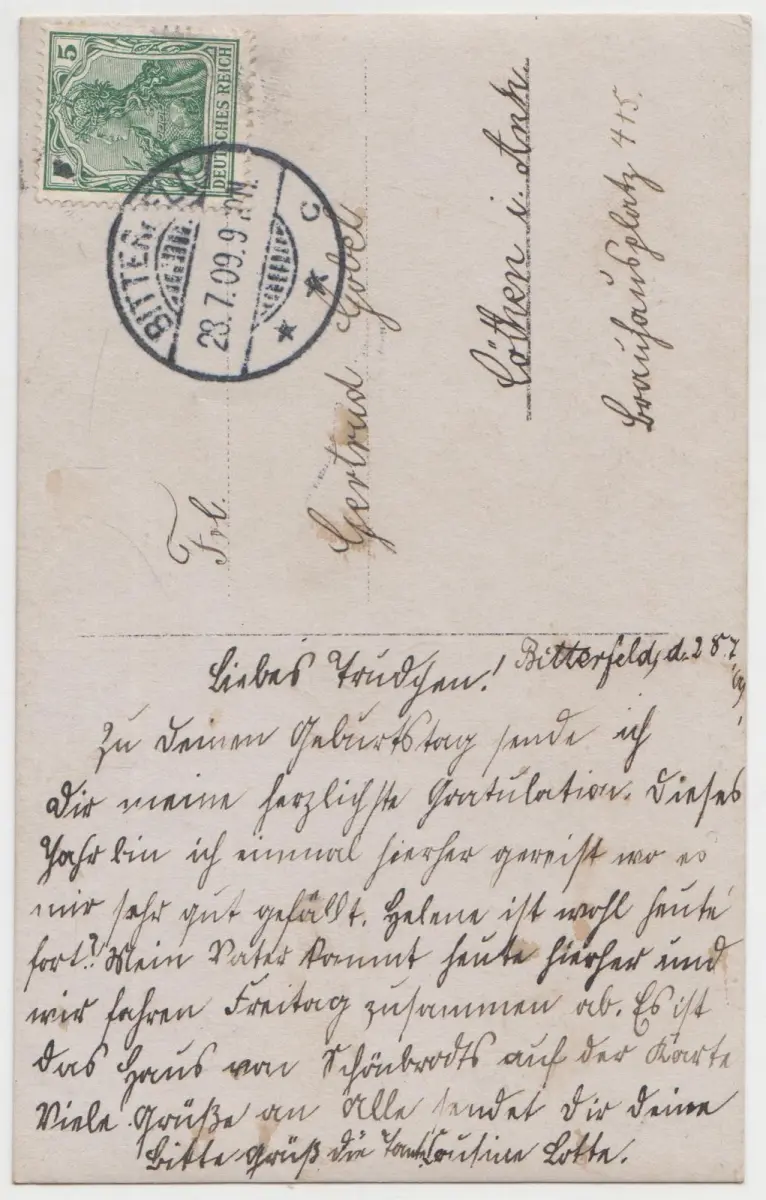 5
DEUTSCHES REICH
BITTERF
28.7.09.9
C
Frl.
Gertrud Göbel
Cöthen i. Anh.
Brauhausplatz 4
Bitterfeld, d. 28.7.
Liebes Trudchen!
Zu deinen Geburtstag sende ich
Dir meine herzlichste Gratulation. Dieses
Jahr bin ich einmal hierher gereist wo es
mir sehr gut gefällt. Helene ist wohl heute
fort? Mein Vater kommt heute hierher und
wir fahren Freitag zusammen ab. Es ist
das Haus von Schönbrodts auf der Karte
Viele Grüße an Alle sendet Dir deine
Cousine Lotte.
Bitte Grüß die Tante